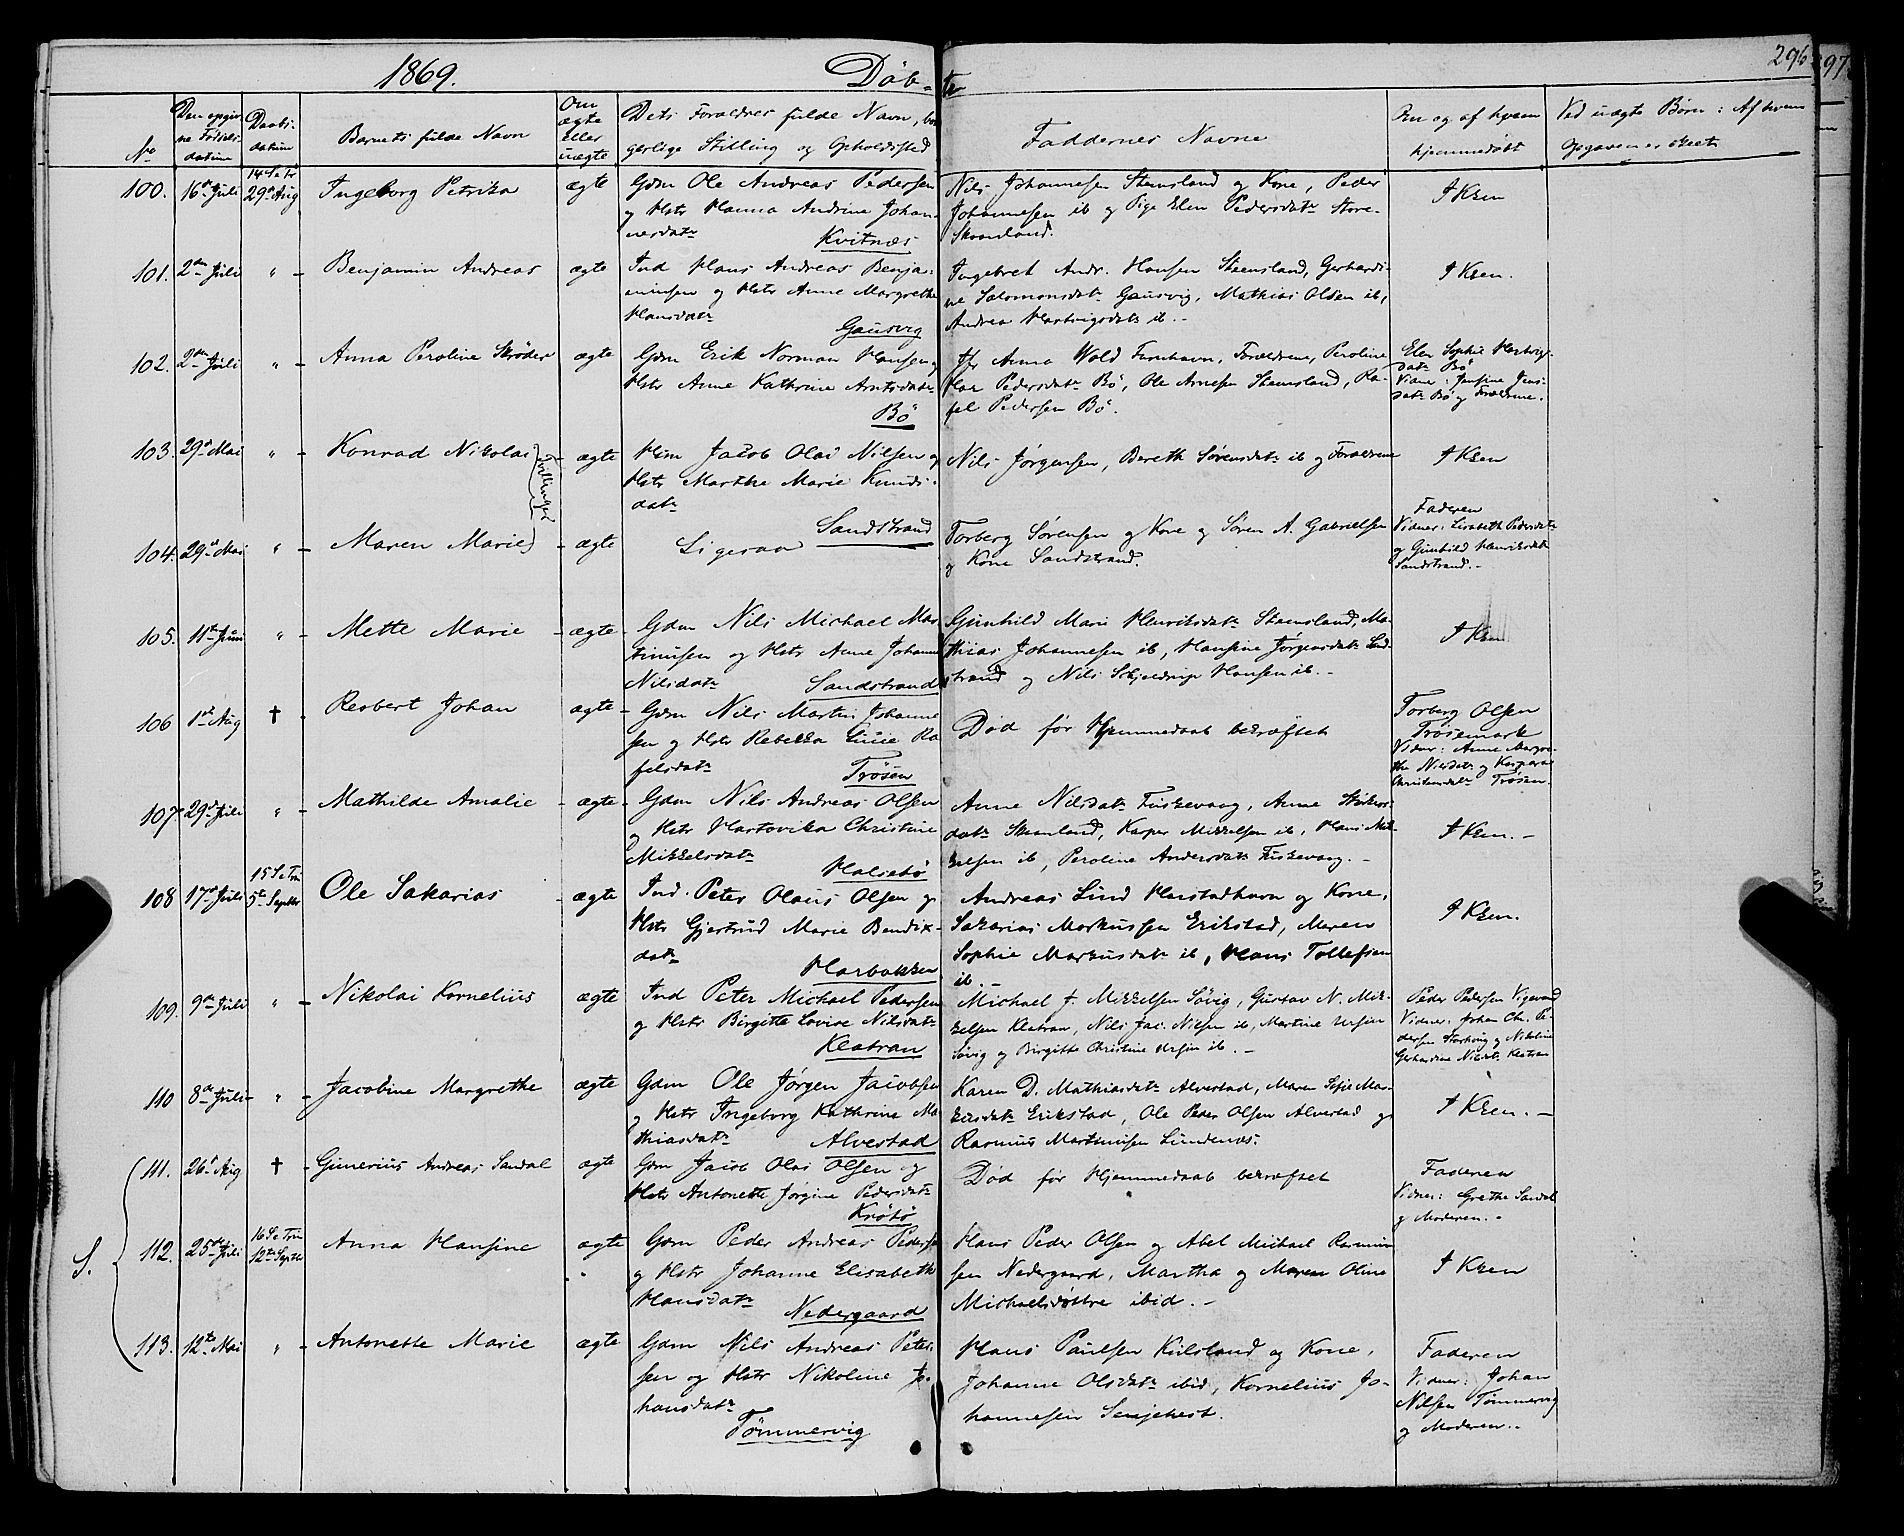 1869.
Døb-
te
296
97
No
Den opgiv
ne Fødsels-
datum
Daabs-
datum
Barnets fulde Navn
Om
ægte
eller
uægte
Dets Forældres fulde Navn, bor
gerlige Stilling og Opholdssted
Faddernes Navne
Om og af hvem
hjemmedøbt
Ved uægte Børn: Af hvem
Opgaven er skeet
100. 16de Juli
14 S e Tr
29de Aug
Ingeborg Petrikka
ægte
Gdm Ole Andreas Pedersen
og Hstr Hanna Andrine Johan-
nesdatr
Kvitnæs
Nils Johannesen Stensland og Kone, Peder
Johannesen ib og Pige Elen Pedersdatr Store-
Skaanland.
I Krken
101. 2den Juli " -
Benjamin Andreas
ægte
Ind Hans Andreas Benja-
minsen og Hstr Anne Margrethe
Hansdatr
Gausvig
Ingebret Andr. Hansen Stensland, Gerhardi-
ne Salomonsdatr Gausvig, Mathias Olsen ib,
Andrea Hartvigsdatr ib. -
I Krken.
102. 2den Juli " -
Anna Peroline Skrøder
ægte
Gdm Erik Norman Hansen og
Hstr Anne Kathrine Arntsdatr
Bö
Jfr Anna Wold Furuhavn, Forældrene, Peroline
Pedersdatr Bö, Ole Arnesen Stensland, Ra-
fel Pedersen Bö.
Elen Sophie Hartvigs-
datr Bö
Vidner: Jensine Jens-
datr Bö og Forældrene.
103. 29de Mai " -
Konrad Nikolai
Tvillinger
ægte
Hmn Jacob Olai Nilsen og
Hstr Marthe Marie Knuds-
datr
Sandstrand
Nils Jørgensen, Bereth Sørensdatr ib og Forældrene
I Krken
104. 29de Mai " -
Maren Marie
- ægte
Ligesaa
Torberg Sørensen og Kone og Søren A. Gabrielsen
og Kone Sandstrand.
Faderen
Vidner: Lisabeth Pedersdatr
og Gunhild Henriksdatr
Sandstrand. -
105. 11te Juni " -
Mette Marie
- ægte -
Gdm Nils Michael Mar
tinusen og Hstr Anne Johanne
Nilsdatr
Sandstrand
Gunhild Marie Henriksdatr Stensland, Ma-
thias Johannesen ib, Hansine Jørgensdatr Sand-
strand og Nils Schjeldrup Hansen ib. -
I Krken
106 1ste Aug † .
Rerbert Johan
ægte -
Gdm Nils Martin Johanne
sen og Hstr Rebekka Lucie Ra
felsdatr
Trøsen
Død før Hjemmedaab bekræftet
Torberg Olsen
Trøsemark
Vidner: Anne Margre-
the Nilsdatr og Kasperae
Christensdatr Trøsen.
107 29de Juli " -
Mathilde Amalie
- ægte -
Gdm Nils Andreas Olsen
og Hstr Hartvikka Christine
Mikkelsdatr
Halsebø
Anne Nilsdatr Fuskevaag, Anne
datr Skaanland, Kasper Mikkelsen ib, Hans Mik-
kelsen ib, Peroline Andersdatr Fuskevaag. -
I Krken. -
108 17de Juli
15 S e Tri
5te Septbr
Ole Sakarias
- ægte
Ind. Peter Olaus Olsen og
Hstr Gjertrud Marie Bendix-
datr
Harbakken
Andreas Lund Harstadhavn og Kone,
Sakarias Markussen Erikstad, Maren
Sophie Markusdatr ib, Hans Tollefsen
ib. -
I Krken.
109. 9de Juli " -
Nikolai Kornelius
ægte
Ind Peter Michael Pedersen
og Hstr Birgitte Lovise Nilsdatr
Kleatran
Michael J. Mikkelsen Søvig, Gustav N. Mik-
kelsen Kleatran, Nils Jac. Nilsen ib, Martine Ursin
Søvig og Birgitte Christine Ursin ib. -
Peder Pedersen Vigevand
Vidner: Johan Chr. Pe-
dersen Storhaug og Nikoline
Gerhardine Nilsdtr Kleatran
110 8de Juli - " -
Jacobine Margrethe
ægte
Gdm Ole Jørgen Jacobsen
og Hstr Ingeborg Kathrine Ma
thiasdatr
Alvestad
Karen D. Mathiasdatr Alvestad, Maren Sofie Mar-
kusdatr Erikstad, Ole Peder Olsen Alvestad og
Rasmus Martinusen Lundenæs.
I Krken. -
111. 26de Aug † -
Gunerius Andreas Sandal
ægte
Gdm Jacob Olai Olsen og
Hstr Antonette Jørgine Pedersdatr
Krøtø
Død før Hjemmedaab bekræftet
Faderen
Vidner: Grethe Sandal
og Moderen. -
S.
112. 25de Juli
16 S e Tri
12te Septbr
Anna Hansine
ægte
Gdm Peder Andreas Pedersen
og Hstr Johanne Elisabeth
Hansdatr
Nedergaard
Hans Peder Olsen og Abel Michael Rasmus
sen Nedergaard, Martha og Maren Oline
Michaelsdøttre ibid. -
I Krken
113. 12te Mai " -
Antonette Marie
ægte
Gdm Nils Andreas Peter
sen og Hstr Nikoline Jo-
hansdatr
Tömmervig
Hans Paulsen Kulsland og Kone,
Johanne Olsdatr ibid, Kornelius Jo-
hannesen Senjehest.
Faderen
Vidner: Johan
Nilsen Tömmervig
og Moderen. -